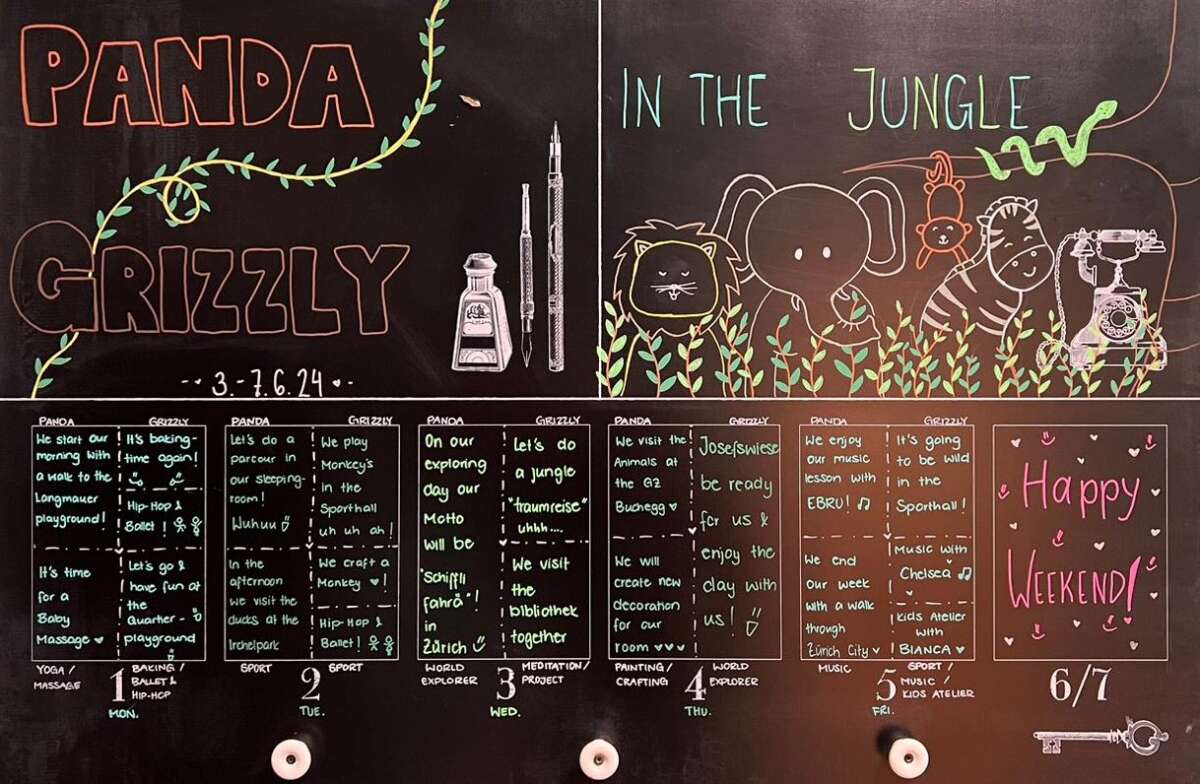 PANDA
GRIZZLY
3.-7.6.24
IN THE JUNGLE
PANDA
We start our
morning with
a walk to the
Langmauer
playground!
It's time
for a
Baby
Massage
GRIZZLY
It's baking-
time again!
Hip-Hop &
Ballet!
Let's go &
have fun at
the
quartier-
playground
YOGA /
MASSAGE
1
MON.
BAKING /
BALLET &
HIP-HOP
PANDA
Let's do a
parcour in
our sleeping-
room!
Wuhuu
In the
afternoon
we visit the
ducks at the
Irchelpark
GRIZZLY
We play
Monkey's
in the
Sporthall
uh uh ah!
We craft a
Monkey !
Hip-Hop &
Ballet!
SPORT
2
TUE.
SPORT
PANDA
On our
exploring
day our
Motto
will be
"Schiffli
fahrä"!
in
Zürich
GRIZZLY
Let's do
a jungle
"traumreise"
uhhh....
We visit
the
bibliothek
together
WORLD
EXPLORER
3
WED.
MEDITATION /
PROJECT
PANDA
We visit the
Animals at
the GZ
Buchegg
We will
create new
decoration
for our
room
GRIZZLY
Josefswiese
be ready
for us &
enjoy the
day with
us!
PAINTING /
CRAFTING
4
THU.
WORLD
EXPLORER
PANDA
We enjoy
our music
lesson with
EBRU!
We end
our week
with a walk
through
Zürich City
GRIZZLY
It's going
to be wild
in the
Sporthall!
Music with
Chelsea
Kids Atelier
with
BIANCA
MUSIC
5
FRI.
SPORT /
MUSIC /
KIDS ATELIER
Happy
WEEKEND!
6/7